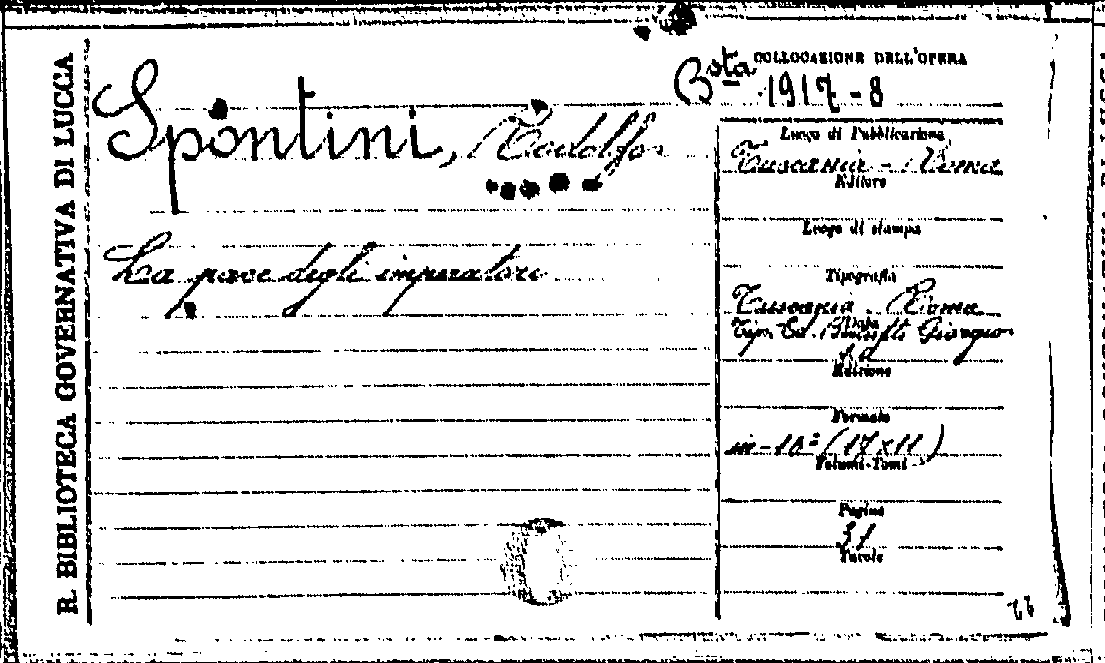 R. BIBLIOTECA GOVERNATIVA DI LUCCA
COLLOCAZIONE DELL'OPERA
Bsta 1917-8
Spontini, Rodolfo
La pace degli imperatori
Luogo di Pubblicazione
Tuscania - Roma
Editore
Luogo di stampa
Tipografia
Tuscania - Roma
Data
Tip. Ed.
Edizione
Formato
in-16° (17x11)
Volumi-Tomi
Pagine
31
Tavole